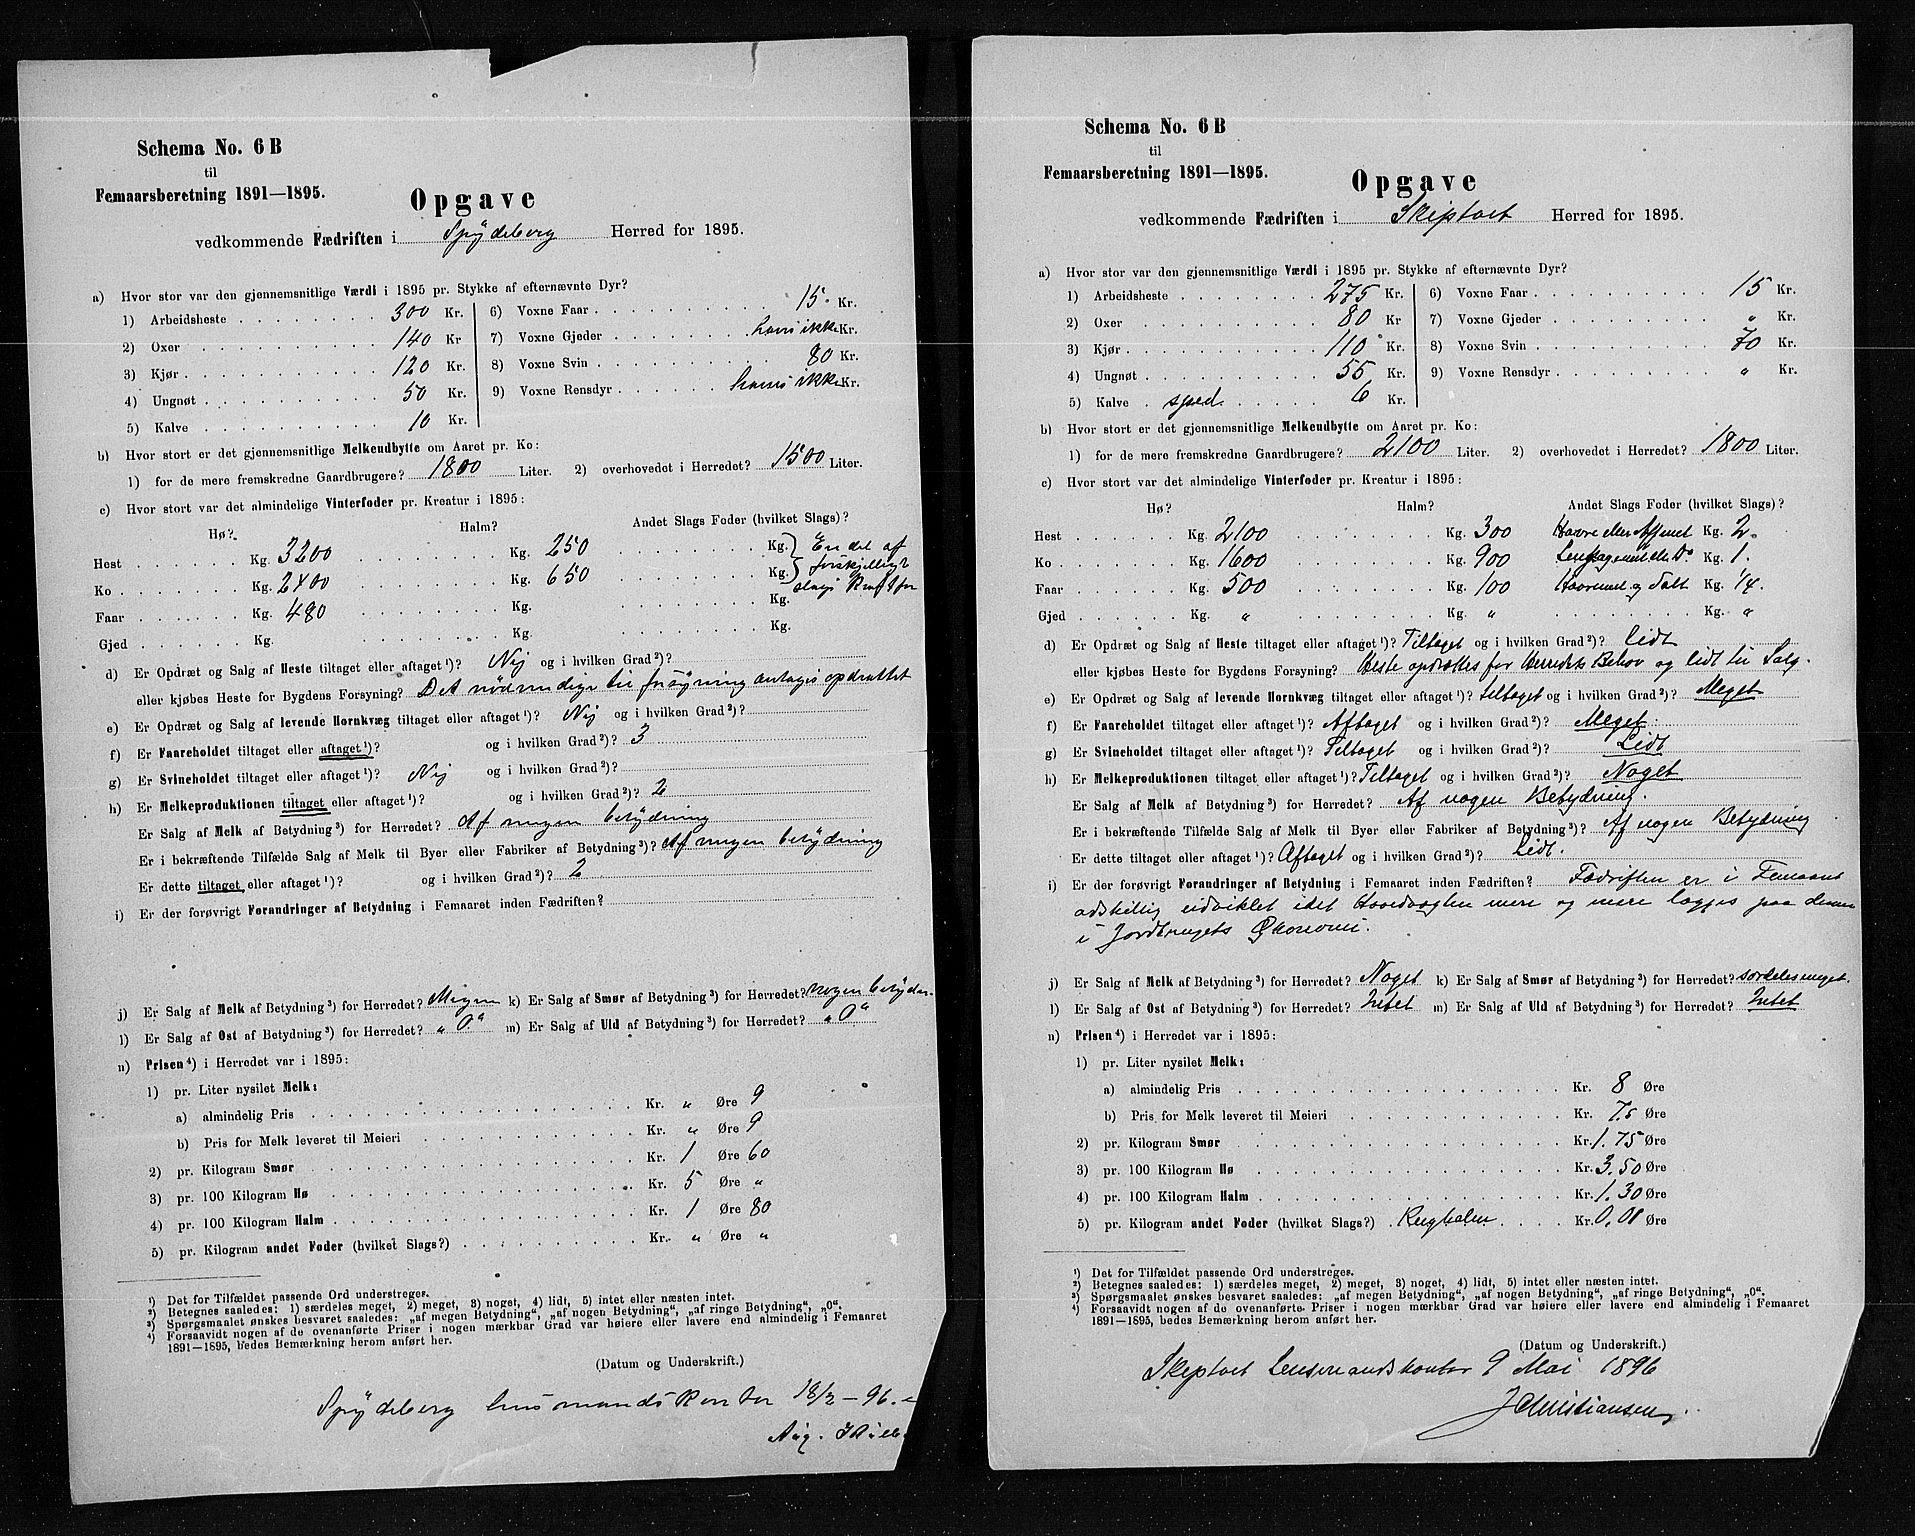 Schema No. 6 B
til
Femaarsberetning 1891—1895.
Opgave
vedkommende Fædriften i Spydeberg Herred for 1895.
a) Hvor stor var den gjennemsnitlige Værdi i 1895 pr. Stykke af efternævnte Dyr?
1) Arbeidsheste 300 Kr. 6) Voxne Faar 15 Kr.
2) Oxer 140 Kr 7) Voxne Gjeder haves ikke Kr.
3) Kjør 120 Kr. 8) Voxne Svin 80 Kr.
4) Ungnøt 50 Kr. 9) Voxne Rensdyr haves ikke Kr.
5) Kalve 10 Kr.
b) Hvor stort er det gjennemsnitlige Melkeudbytte om Aaret pr. Ko:
1) for de mere fremskredne Gaardbrugere? 1800 Liter. 2) overhovedet i Herredet? 1500 Liter.
c) Hvor stort var det almindelige Vinterfoder pr. Kreatur i 1895:
Hø? Halm? Andet Slags Foder (hvilket Slags)?
Hest Kg. 3200 Kg. 250 Kg. En del af
Ko Kg. 2400 Kg. 650 Kg. forskjelligt
Faar Kg. 480 Kg. Kg. slags Kraftfor
Gjed Kg. Kg. Kg.
d) Er Opdræt og Salg af Heste tiltaget eller aftaget¹)? Nej og i hvilken Grad²)?
eller kjøbes Heste for Bygdens Forsyning? Det nødvendige til forsyning antages opdrættet
e) Er Opdræt og Salg af levende Hornkvæg tiltaget eller aftaget¹)? Nej og i hvilken Grad²)?
f) Er Faareholdet tiltaget eller aftaget¹)? og i hvilken Grad²)? 3
g) Er Svineholdet tiltaget eller aftaget¹)? Nej og i hvilken Grad²)?
h) Er Melkeproduktionen tiltaget eller aftaget¹)? og i hvilken Grad²)? 2
Er Salg af Melk af Betydning³) for Herredet? Af megen betydning
Er i bekræftende Tilfælde Salg af Melk til Byer eller Fabriker af Betydning³)? Af megen betydning
Er dette tiltaget eller aftaget¹)? og i hvilken Grad²)? 2
i) Er der forøvrigt Forandringer af Betydning i Femaaret inden Fædriften?
j) Er Salg af Melk af Betydning³) for Herredet? Megen k) Er Salg af Smør af Betydning³) for Herredet? nogen betydn.
l) Er Salg af Ost af Betydning³) for Herredet? „0“ m) Er Salg af Uld af Betydning³) for Herredet? „0“
n) Prisen⁴) i Herredet var i 1895:
1) pr. Liter nysilet Melk:
a) almindelig Pris Kr. „ Øre 9
b) Pris for Melk leveret til Meieri Kr. „ Øre 9
2) pr. Kilogram Smør Kr. 1 Øre 60
3) pr. 100 Kilogram Hø Kr. 5 Øre „
4) pr. 100 Kilogram Halm Kr. 1 Øre 80
5) pr. Kilogram andet Foder (hvilket Slags?) Kr. „ Øre „
¹) Det for Tilfældet passende Ord understreges.
²) Betegnes saaledes: 1) særdeles meget, 2) meget, 3) noget, 4) lidt, 5) intet eller næsten intet.
³) Spørgsmaalet ønskes besvaret saaledes: „af megen Betydning“, „af nogen Betydning“, „af ringe Betydning“, „0“.
⁴) Forsaavidt nogen af de ovenanførte Priser i nogen mærkbar Grad var høiere eller lavere end almindelig i Femaaret
1891—1895, bedes Bemærkning herom anført her.
(Datum og Underskrift.)
Spydeberg lensmandskontor 18/2 – 96.
Aug.
Schema No. 6 B
til
Femaarsberetning 1891—1895.
Opgave
vedkommende Fædriften i Skiptvet Herred for 1895.
a) Hvor stor var den gjennemsnitlige Værdi i 1895 pr. Stykke af efternævnte Dyr?
1) Arbeidsheste 275 Kr. 6) Voxne Faar 15 Kr.
2) Oxer 80 Kr 7) Voxne Gjeder „ Kr.
3) Kjør 110 Kr. 8) Voxne Svin 70 Kr.
4) Ungnøt 55 Kr. 9) Voxne Rensdyr „ Kr.
5) Kalve spæd 6 Kr.
b) Hvor stort er det gjennemsnitlige Melkeudbytte om Aaret pr. Ko:
1) for de mere fremskredne Gaardbrugere? 2100 Liter. 2) overhovedet i Herredet? 1800 Liter.
c) Hvor stort var det almindelige Vinterfoder pr. Kreatur i 1895:
Hø? Halm? Andet Slags Foder (hvilket Slags)?
Hest Kg. 2100 Kg. 300 Havre eller Kg. 2.
Ko Kg. 1600 Kg. 900 Kg. 1.
Faar Kg. 500 Kg. 100 Havremel og Salt Kg. 1/4.
Gjed Kg. „ Kg. „ Kg. „
d) Er Opdræt og Salg af Heste tiltaget eller aftaget¹)? Tiltaget og i hvilken Grad²)? lidt
eller kjøbes Heste for Bygdens Forsyning? Heste opdrættes for Herredets Behov og lidt til Salg.
e) Er Opdræt og Salg af levende Hornkvæg tiltaget eller aftaget¹)? tiltaget og i hvilken Grad²)? Meget
f) Er Faareholdet tiltaget eller aftaget¹)? Aftaget og i hvilken Grad²)? Meget.
g) Er Svineholdet tiltaget eller aftaget¹)? Tiltaget og i hvilken Grad²)? Lidt
h) Er Melkeproduktionen tiltaget eller aftaget¹)? Tiltaget og i hvilken Grad²)? Noget
Er Salg af Melk af Betydning³) for Herredet? Af nogen Betydning.
Er i bekræftende Tilfælde Salg af Melk til Byer eller Fabriker af Betydning³)? Af nogen Betydning
Er dette tiltaget eller aftaget¹)? Aftaget og i hvilken Grad²)? Lidt.
i) Er der forøvrigt Forandringer af Betydning i Femaaret inden Fædriften? Fædriften er i Femaaret
adskillig udviklet idet Hovedvægten mere og mere lægges paa denne
i Jordbrugets Økonomi.
j) Er Salg af Melk af Betydning³) for Herredet? Noget k) Er Salg af Smør af Betydning³) for Herredet? særdeles meget.
l) Er Salg af Ost af Betydning³) for Herredet? Intet m) Er Salg af Uld af Betydning³) for Herredet? Intet
n) Prisen⁴) i Herredet var i 1895:
1) pr. Liter nysilet Melk:
a) almindelig Pris Kr. 8 Øre
b) Pris for Melk leveret til Meieri Kr. 7.5 Øre
2) pr. Kilogram Smør Kr. 1.75 Øre
3) pr. 100 Kilogram Hø Kr. 3.50 Øre
4) pr. 100 Kilogram Halm Kr. 1.30 Øre
5) pr. Kilogram andet Foder (hvilket Slags?) Rughalm Kr. 0,01 Øre
¹) Det for Tilfældet passende Ord understreges.
²) Betegnes saaledes: 1) særdeles meget, 2) meget, 3) noget, 4) lidt, 5) intet eller næsten intet.
³) Spørgsmaalet ønskes besvaret saaledes: „af megen Betydning“, „af nogen Betydning“, „af ringe Betydning“, „0“.
⁴) Forsaavidt nogen af de ovenanførte Priser i nogen mærkbar Grad var høiere eller lavere end almindelig i Femaaret
1891—1895, bedes Bemærkning herom anført her.
(Datum og Underskrift.)
Skiptvet Lensmandskontor 9 Mai 1896
J Christiansen.